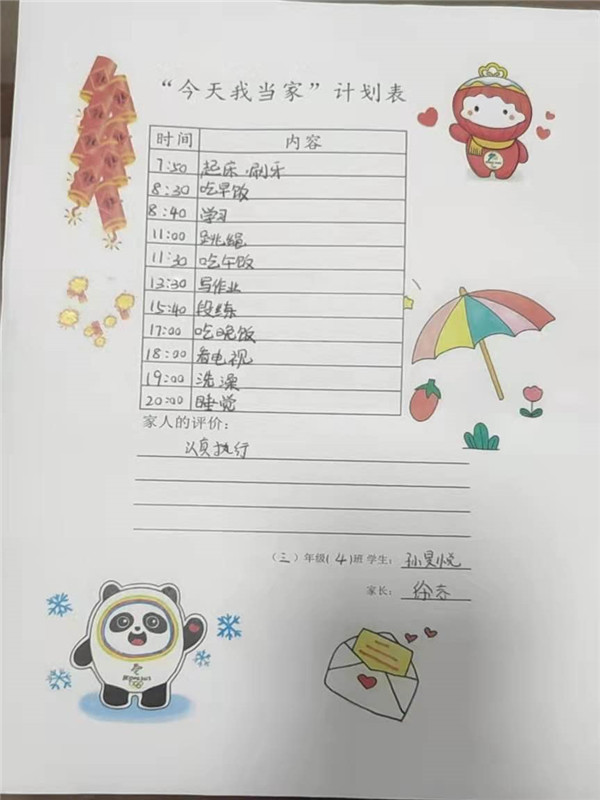 “今天我当家”计划表
时间 内容
7:50 起床·刷牙
8:30 吃早饭
8:40 学习
11:00 跳绳
11:30 吃午饭
13:30 写作业
15:40 段练
17:00 吃晚饭
18:00 看电视
19:00 洗澡
20:00 睡觉
家人的评价：
认真执行
（三）年级（4）班 学生： 孙昊悦
家长： 徐